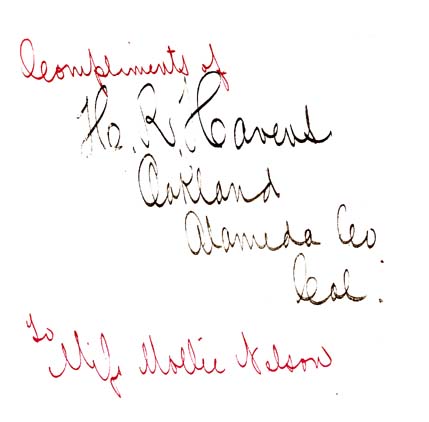 Compliments of
H. R. Havens
Oakland
Alameda Co
Cal.
To
Miss Mollie Nelson